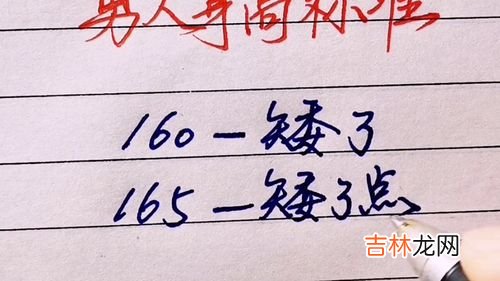 男人身高标准
160一矮了
165一矮了点
吉林龙网